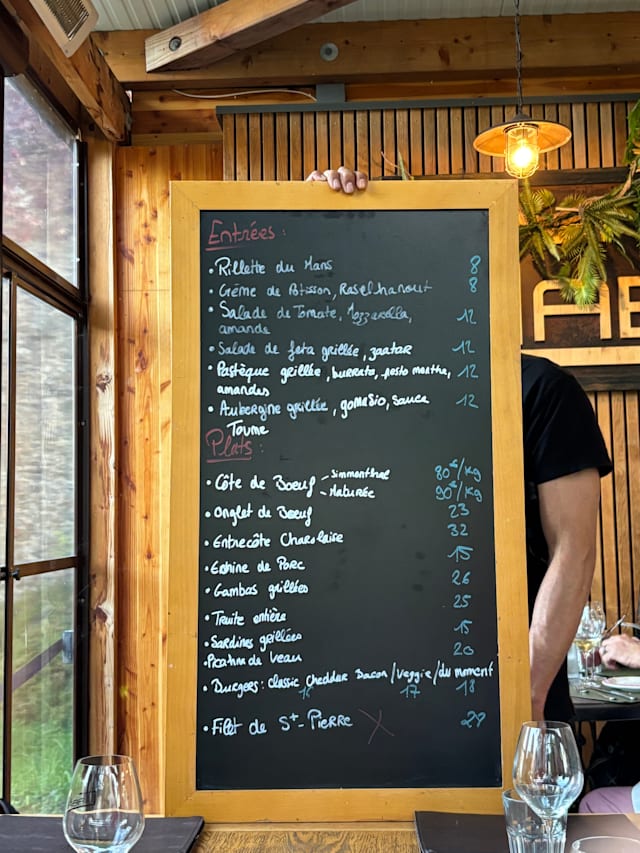 Entrées :
• Rillette du Mans 8
• Crème de Patisson, Raselhanout 8
• Salade de Tomate, Mozzarella, 12
amande
• Salade de feta grillée, zaatar 12
• Pastèque grillée, burrata, pesto menthe, 12
amandes
• Aubergine grillée, gomasio, sauce 12
Toume
Plats :
• Côte de Boeuf - Simmenthal 80€/kg
- Maturée 90€/kg
• Onglet de Boeuf 23
• Entrecôte Charolaise 32
• Echine de Porc 15
• Gambas grillées 26
• Truite entière 25
• Sardines grillées 15
• Picanha de veau 20
• Burgers : classic cheddar Bacon / veggie / du moment
16 17 18
• Filet de St-Pierre X 29
AB